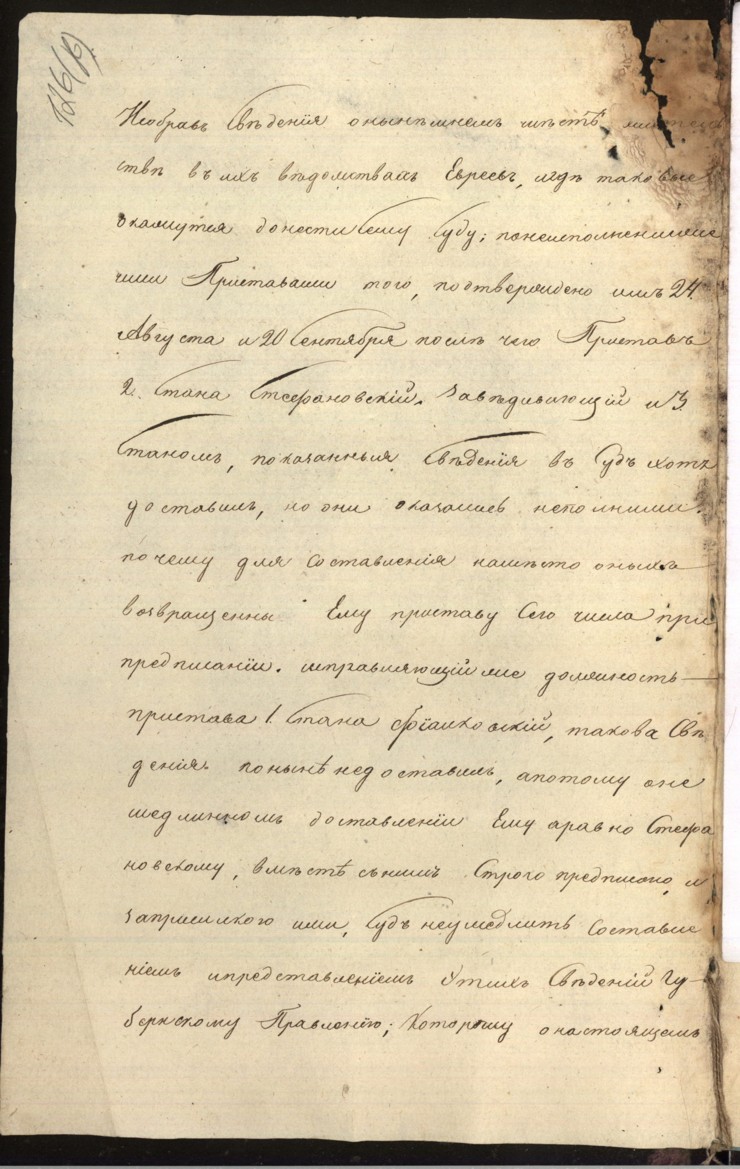 126 (б)
И собравъ Свѣденiя о нынѣшнемъ мѣстѣ жительс
твѣ въ ихъ вѣдомствахъ Евреевъ, гдѣ таковые
окажутся донести ему Суду; по неисполненiи же
сими Приставами того, подтверждено имъ 24.
Августа и 20 Сентября послѣ чего Приставъ
2. Стана Стефановскiй. завѣдивающiй и 3.
Станомъ, показанныя Свѣденiя въ Судъ хотя
доставилъ, но они оказались неполными.
почему для составленiя намѣсто оныхъ
возвращенны Ему приставу Сего числа при
предписанiи. исправляющiй же должность
пристава 1. Стана скiй, такова Свѣ
денiя понынѣ недоставилъ, апотому оне
медлинномъ доставленiи Ему аравно Стефа
новскому, вмѣстѣ сънимъ Строго предписано, и
заприсилкою ими, Судъ неумедлитъ Составле
нiемъ ипредставленiемъ Этихъ Свѣденiй Гу-
бернскому Правленiю; Которому онастоящемъ